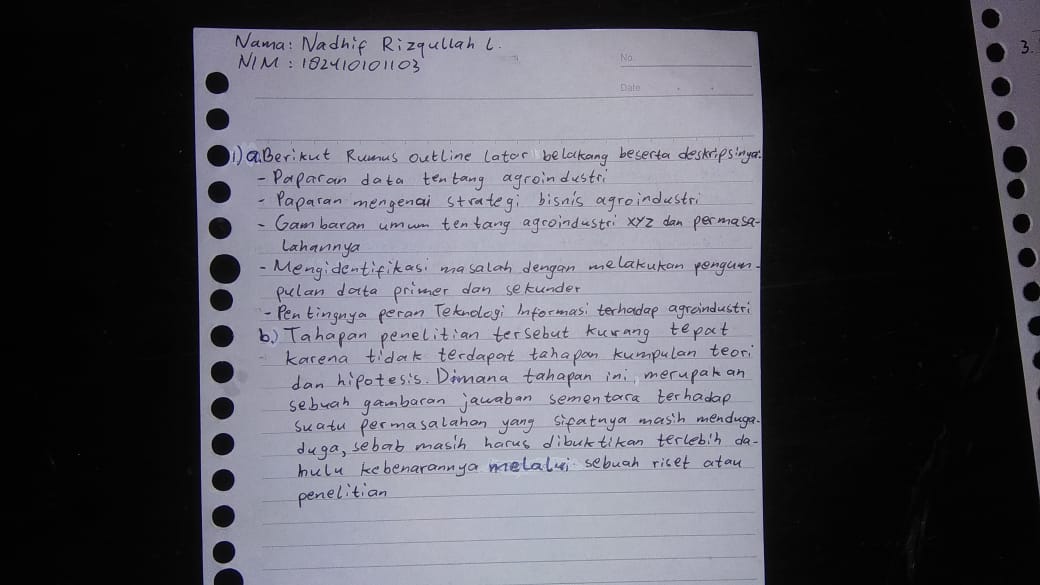 Nama: Nadhif Rizqullah L.
NIM : 182410101103
No.
Date
3.
1) a. Berikut Rumus outline latar belakang beserta deskripsinya:
- Paparan data tentang agroindustri
- Paparan mengenai strategi bisnis agroindustri
- Gambaran umum tentang agroindustri xyz dan permasa-
lahannya
- Mengidentifikasi masalah dengan melakukan pengum-
pulan data primer dan sekunder
- Pentingnya peran Teknologi Informasi terhadap agroindustri
b.) Tahapan penelitian tersebut kurang tepat
karena tidak terdapat tahapan kumpulan teori
dan hipotesis. Dimana tahapan ini merupakan
sebuah gambaran jawaban sementara terhadap
suatu permasalahan yang sifatnya masih menduga-
duga, sebab masih harus dibuktikan terlebih da-
hulu kebenarannya melalui sebuah riset atau
penelitian